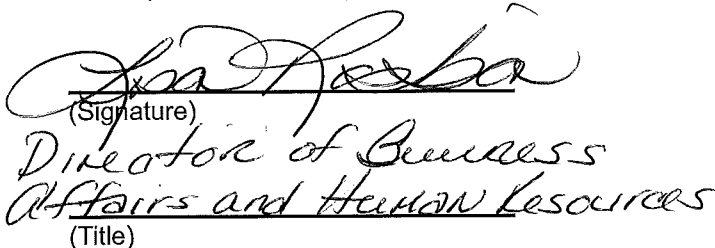 Lisa
(Signature)
Director of Business
Affairs and Human Resources
(Title)